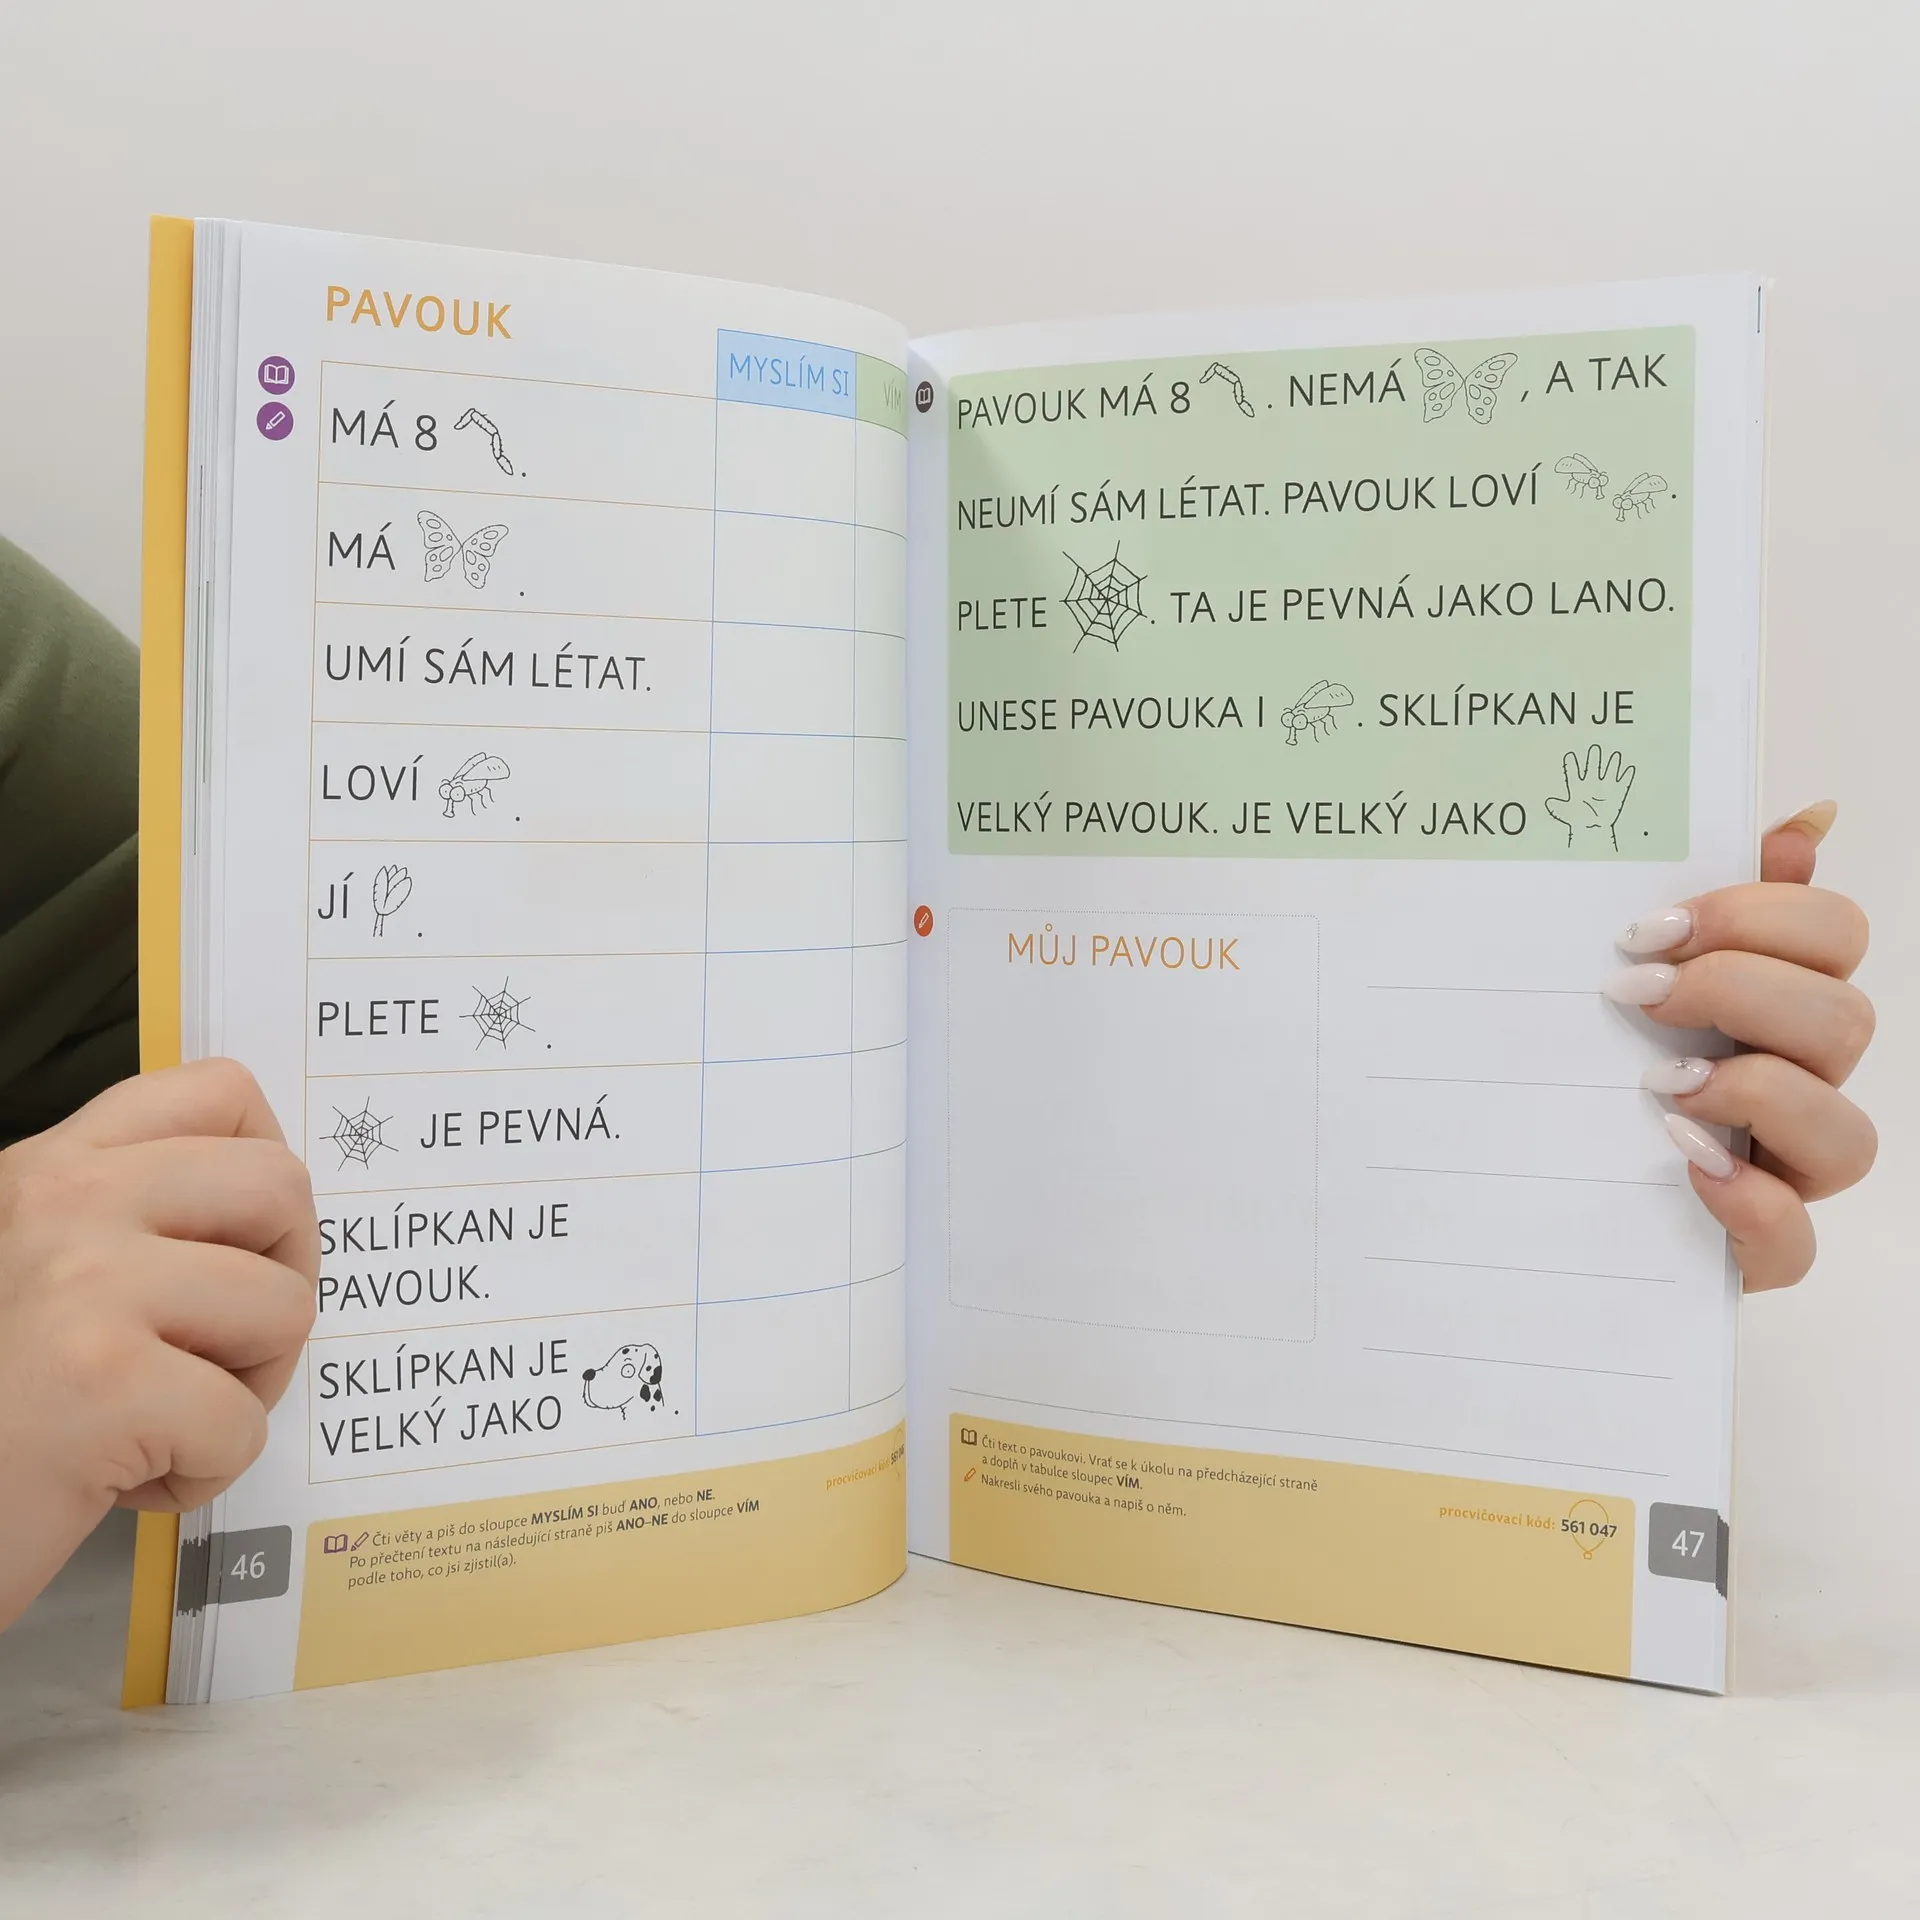 PAVOUK
MYSLÍM SI
VÍM
MÁ 8 .
MÁ .
UMÍ SÁM LÉTAT.
LOVÍ .
JÍ .
PLETE .
JE PEVNÁ.
SKLÍPKAN JE
PAVOUK.
SKLÍPKAN JE
VELKÝ JAKO .
procvičovací kód:
Čti věty a piš do sloupce MYSLÍM SI buď ANO, nebo NE.
Po přečtení textu na následující straně piš ANO–NE do sloupce VÍM
podle toho, co jsi zjistil(a).
46
PAVOUK MÁ 8 . NEMÁ , A TAK
NEUMÍ SÁM LÉTAT. PAVOUK LOVÍ .
PLETE . TA JE PEVNÁ JAKO LANO.
UNESE PAVOUKA I . SKLÍPKAN JE
VELKÝ PAVOUK. JE VELKÝ JAKO .
MŮJ PAVOUK
Čti text o pavoukovi. Vrať se k úkolu na předcházející straně
a doplň v tabulce sloupec VÍM.
Nakresli svého pavouka a napiš o něm.
procvičovací kód: 561 047
47